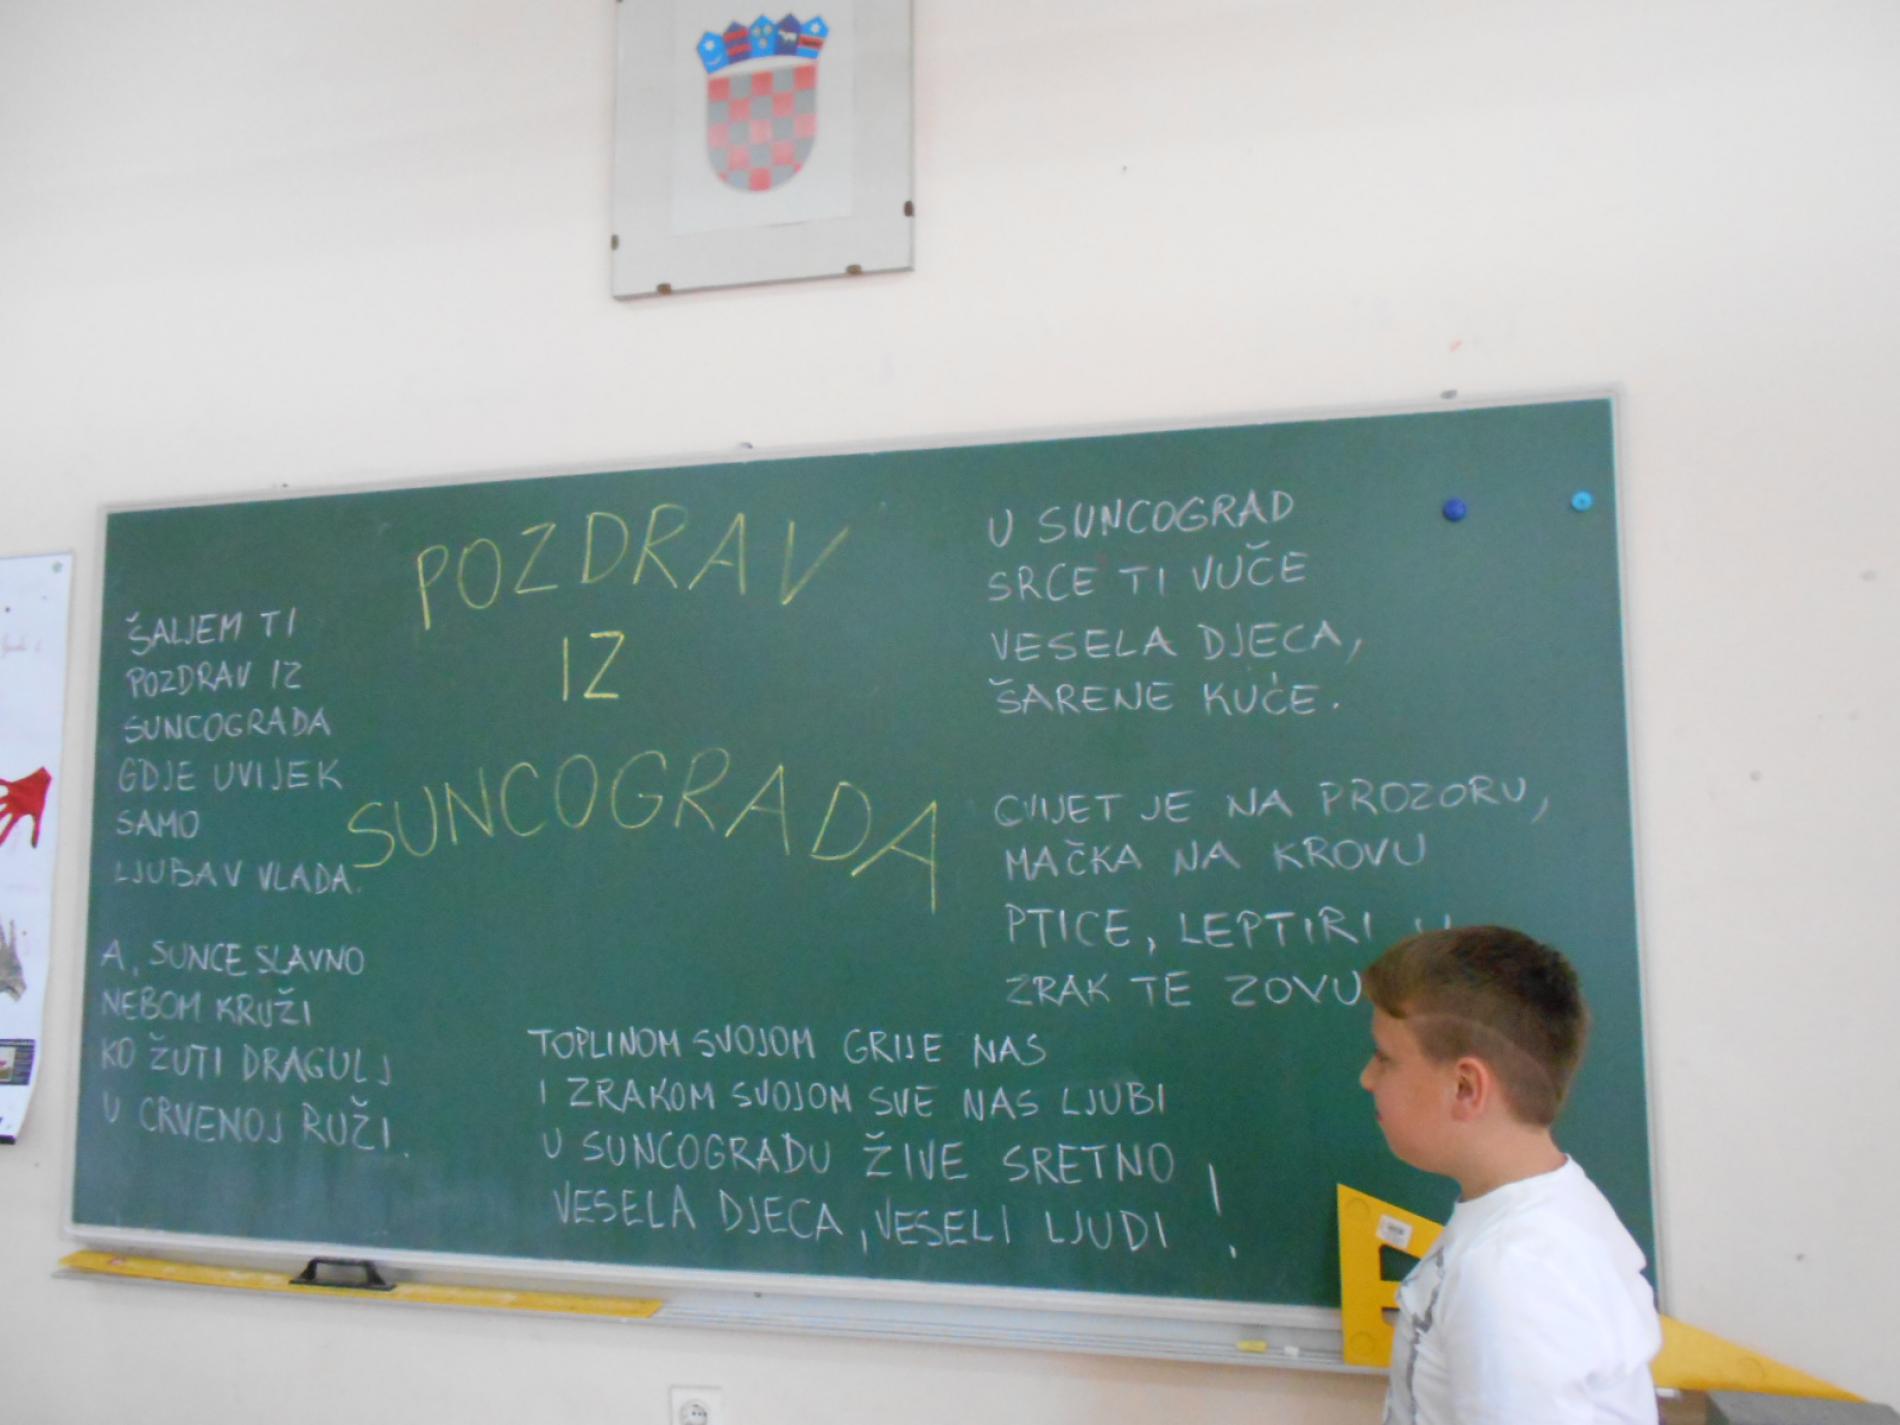 POZDRAV
IZ
SUNCOGRADA
ŠALJEM TI
POZDRAV IZ
SUNCOGRADA
GDJE UVIJEK
SAMO
LJUBAV VLADA.
A, SUNCE SLAVNO
NEBOM KRUŽI
KO ŽUTI DRAGULJ
U CRVENOJ RUŽI.
U SUNCOGRAD
SRCE TI VUČE
VESELA DJECA,
ŠARENE KUĆE.
CVIJET JE NA PROZORU,
MAČKA NA KROVU
PTICE, LEPTIRI U
ZRAK TE ZOVU
TOPLINOM SVOJOM GRIJE NAS
I ZRAKOM SVOJOM SVE NAS LJUBI
U SUNCOGRADU ŽIVE SRETNO
VESELA DJECA, VESELI LJUDI !